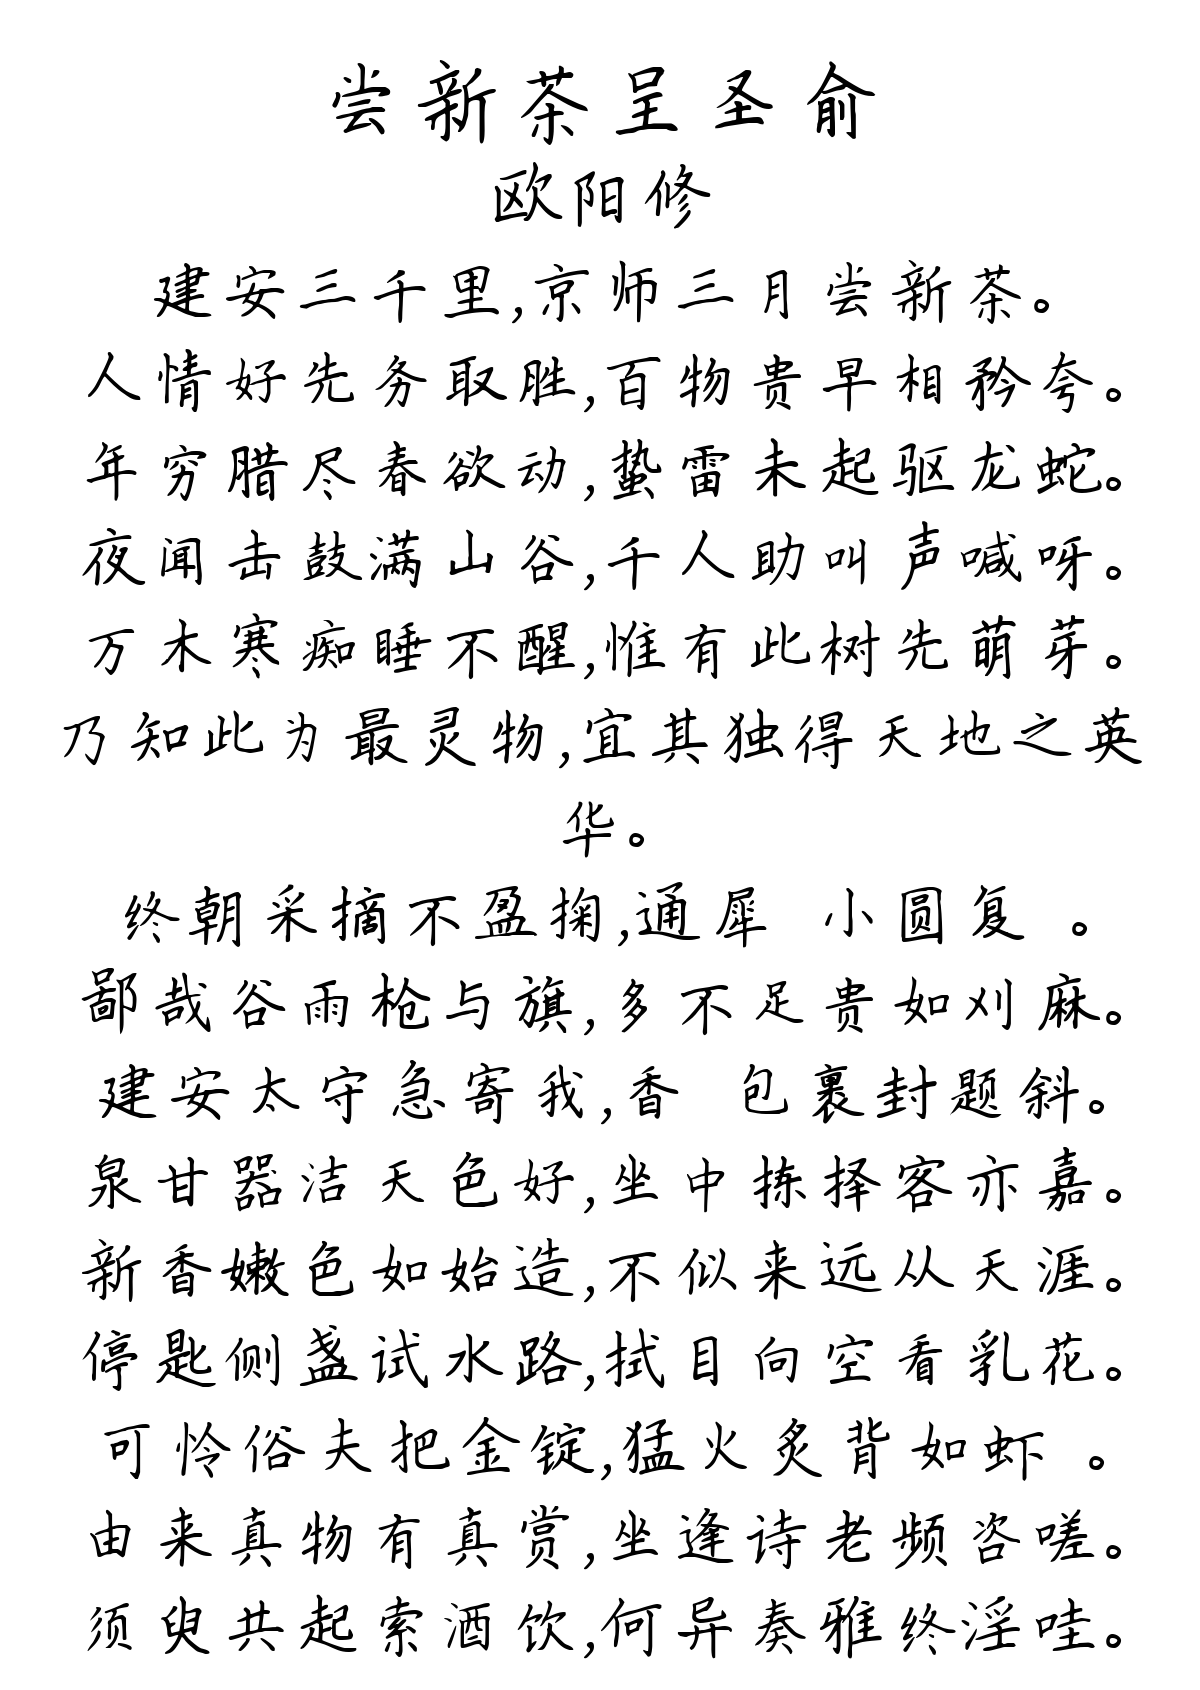 尝新茶呈圣俞
欧阳修
建安三千里,京师三月尝新茶。
人情好先务取胜,百物贵早相矜夸。
年穷腊尽春欲动,蛰雷未起驱龙蛇。
夜闻击鼓满山谷,千人助叫声喊呀。
万木寒痴睡不醒,惟有此树先萌芽。
乃知此为最灵物,宜其独得天地之英
华。
终朝采摘不盈掬,通犀 小圆复 。
鄙哉谷雨枪与旗,多不足贵如刈麻。
建安太守急寄我,香 包裹封题斜。
泉甘器洁天色好,坐中拣择客亦嘉。
新香嫩色如始造,不似来远从天涯。
停匙侧盏试水路,拭目向空看乳花。
可怜俗夫把金锭,猛火炙背如虾 。
由来真物有真赏,坐逢诗老频咨嗟。
须臾共起索酒饮,何异奏雅终淫哇。